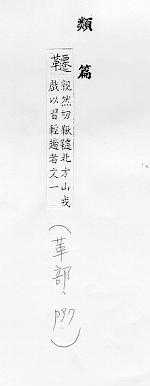 類篇
韆
親然切鞦韆北方山戎
戲以習輕趫者文一
(革部、p97)